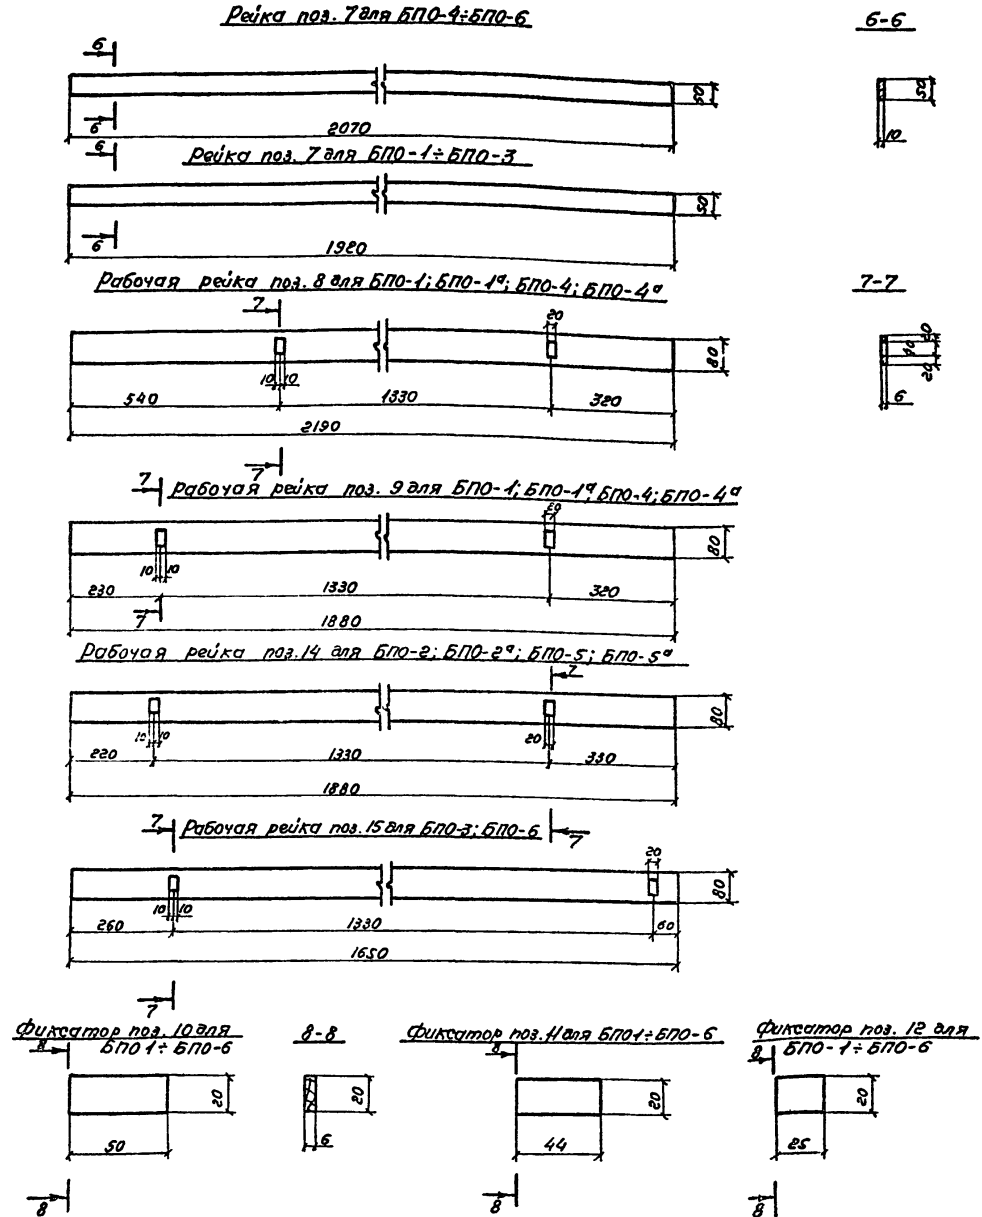 Рейка поз. 7 для БПО-4÷БПО-6
6-6
6
50
50
6
2070
10
6
Рейка поз. 7 для БПО-1÷БПО-3
50
6
1920
Рабочая рейка поз. 8 для БПО-1; БПО-1ᵃ; БПО-4; БПО-4ᵃ
7-7
7
20
20
80
40
20
10 10
540
1330
320
6
2190
7
7
Рабочая рейка поз. 9 для БПО-1; БПО-1ᵃ; БПО-4; БПО-4ᵃ
20
80
10 10
230
1330
320
7
1880
Рабочая рейка поз. 14 для БПО-2; БПО-2ᵃ; БПО-5; БПО-5ᵃ
7
80
10 10
20
220
1330
330
1880
7
Рабочая рейка поз. 15 для БПО-3; БПО-6
7
20
80
10 10
260
1330
60
1650
7
Фиксатор поз. 10 для
БПО 1÷БПО-6
8
20
50
8
8-8
20
6
Фиксатор поз. 11 для БПО1÷БПО-6
8
20
44
8
Фиксатор поз. 12 для
БПО-1÷БПО-6
8
20
25
8